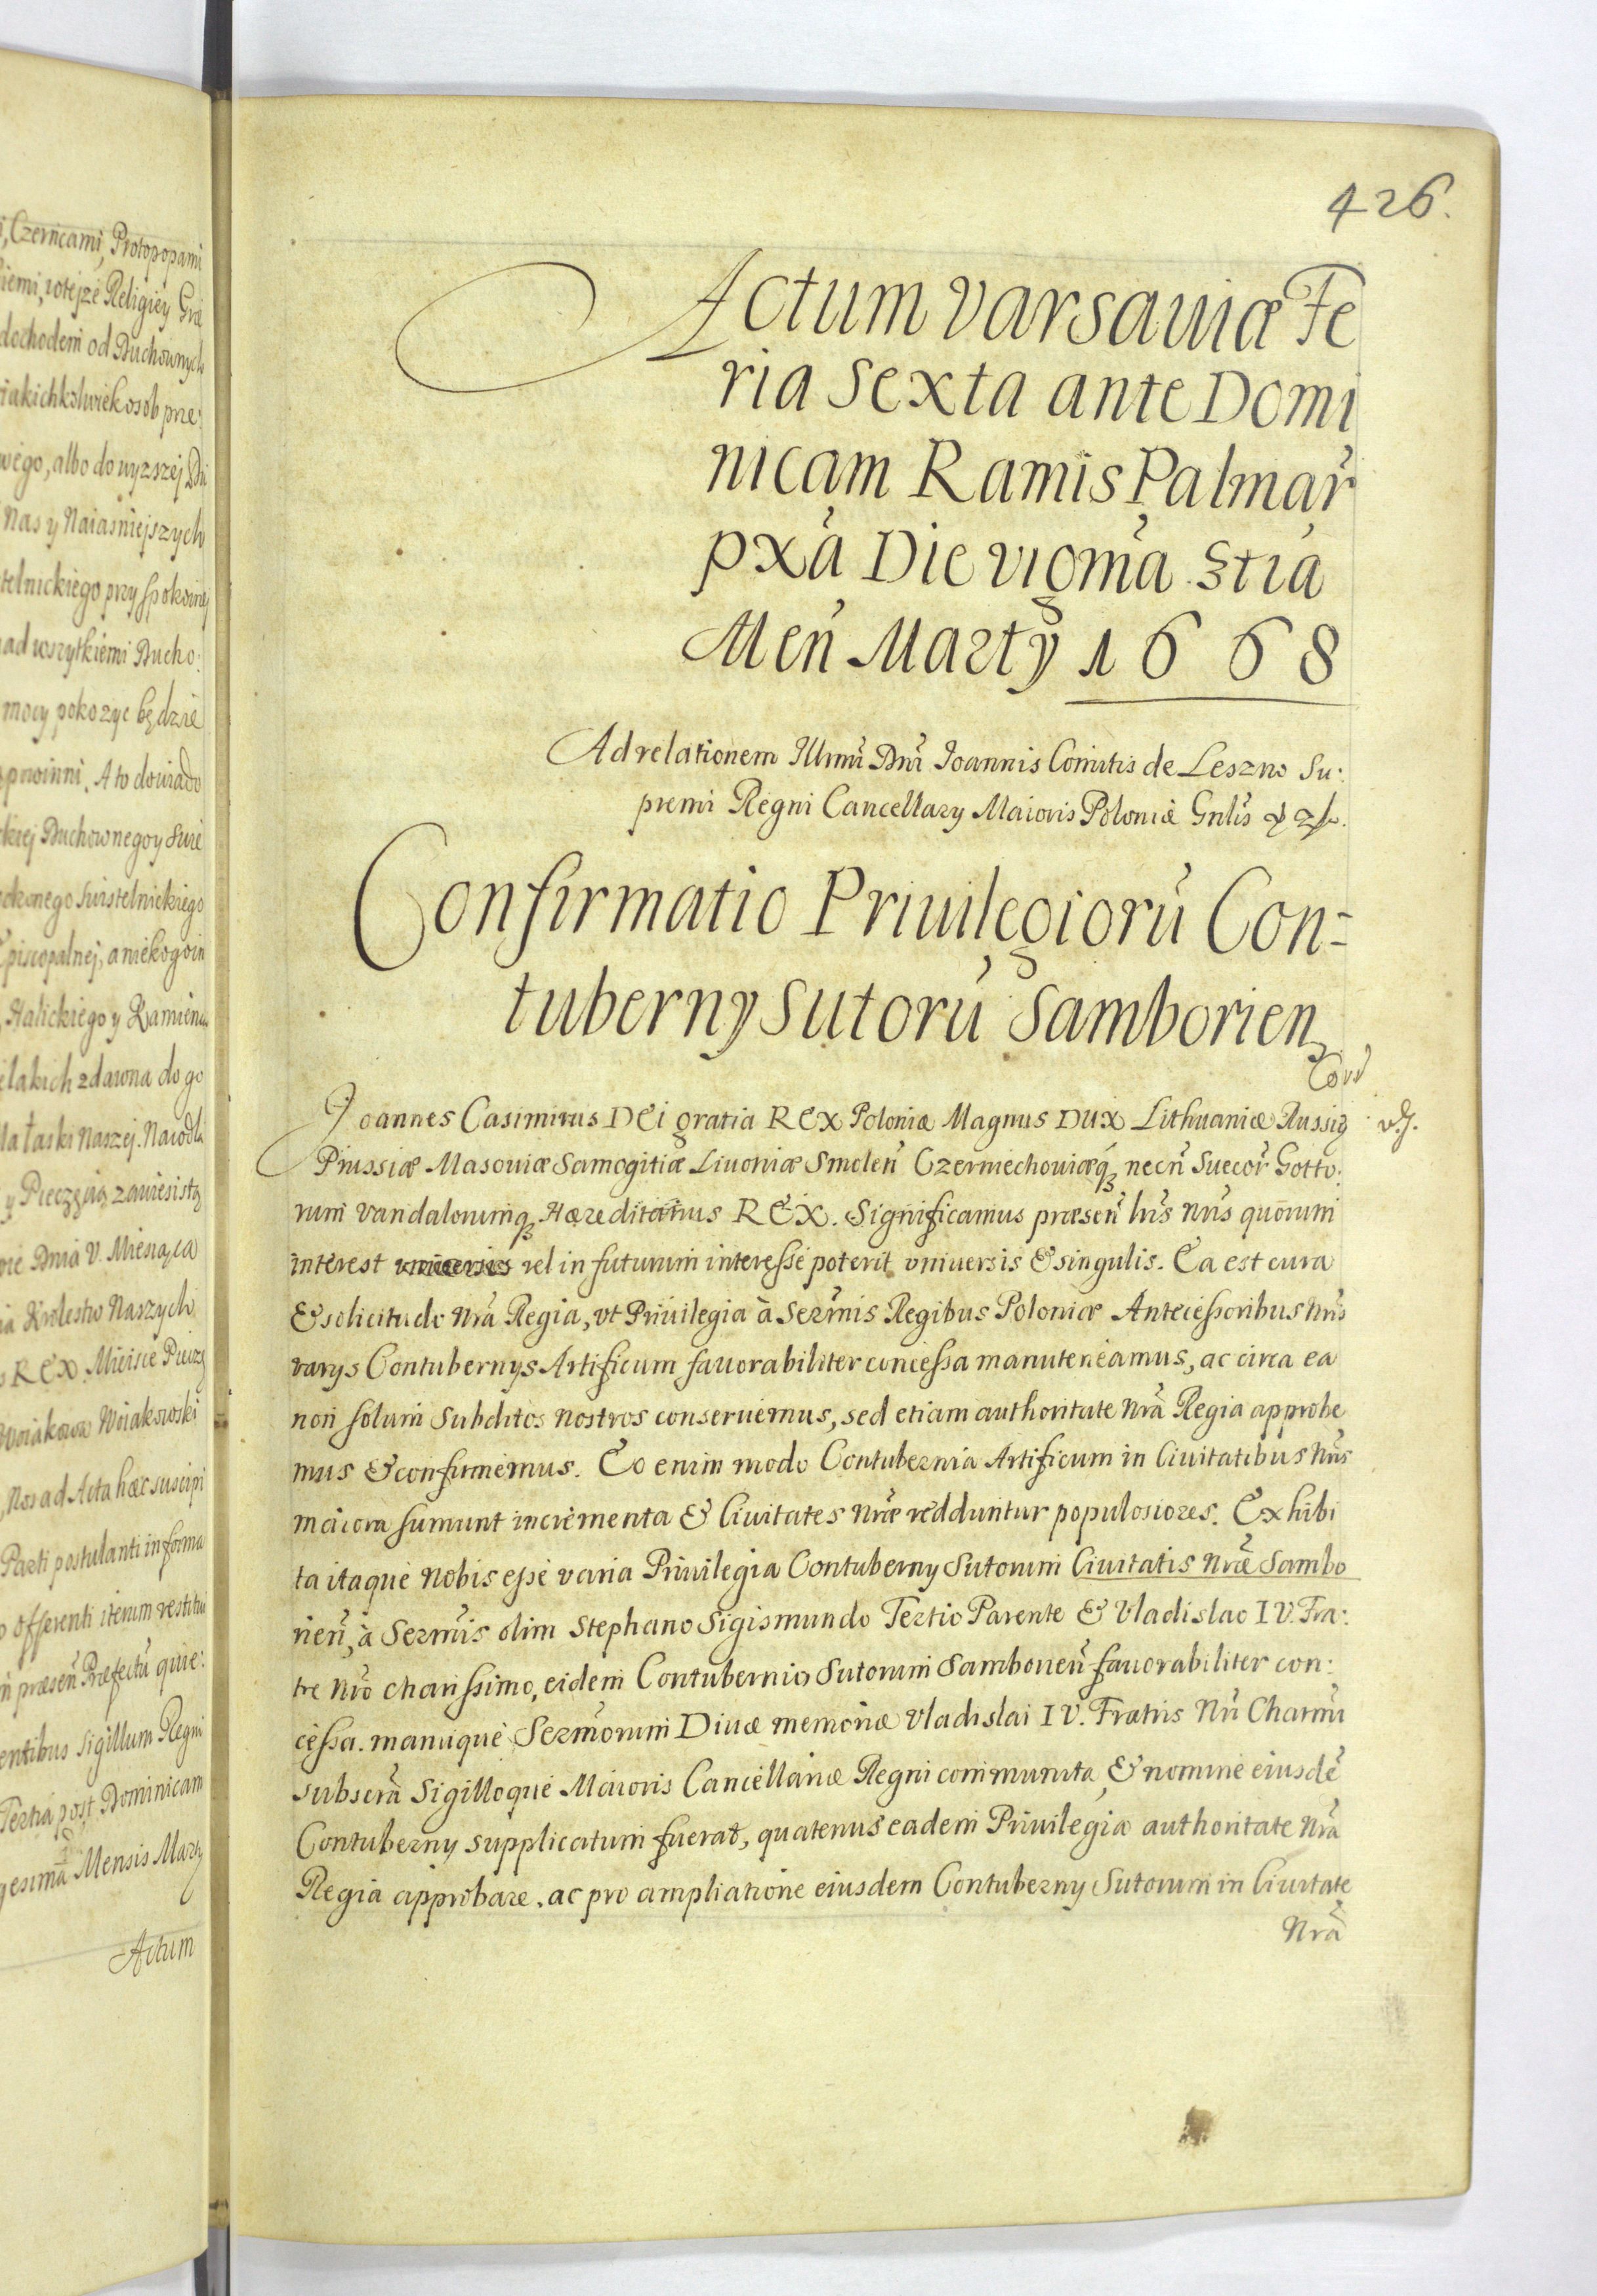 i, Czerncami, Protopopami
iemi, wtejze Religiey Græ
dochodem od Duchownych
iakichkolwiek osob prze:
wego, albo do wyzszej Du
Nas y Naiasniejszych
telnickiego przy spokoiney
ad wszytkiemi Ducho:
mocy pokozyc będzie
powinni. A to dowiado
kiej Duchownego y Swie
okonego Swistelnickiego
Episcopalnej, a niekogo in
Halickiego y Kamienu
elakich zdawna do go
la łaski Naszej. Na wodla
y Pieczęcią zawiesistą
wie Dnia V. Miesiąca
ia Krolestw Naszych
s REX. Mieisce Pieczę
Woiakowa Woiakowski
, Nos ad Acta hæc suscipi
Parti postulanti in forma
o offerenti iterum restitui
m præsen̄ Præfectū quie:
entibus Sigillum Regni
Tertia post Dominicam
gesimā Mensis Marty
Actum
426.
Actum Varsauiæ Fe
ria Sexta ante Domi
nicam Ramis Palmar̄
pxā Die vigmā 3tia
Men̄ Marty 1668
Ad relationem Illmī Dnī Ioannis Comitis de Leszno Su:
premi Regni Cancellary Maioris Poloniæ Gnlis &
Confirmatio Priuilegiorū Con=
tuberny Sutorū Samborien
Ioannes Casimirus DEi gratia REX Poloniæ Magnus DUX Lithuaniæ Russię
Prussiæ Masouiæ Samogitiæ Liuoniæ Smolen̄ Czerniechouiæq, necn̄ Suecor̄ Gotto:
rum Vandalorumq Hæreditarius REX. Significamus præsen̄ lrīs nrīs quorum
interest vel in futurum interesse poterit vniuersis & singulis. Ea est cura
& solicitudo Nrā Regia, vt Priuilegia à Sermīs Regibus Poloniæ Antecessoribus Nrīs
varys Contubernys Artificum fauorabiliter concessa manuteneamus, ac circa ea
non solum Subditos Nostros conseruemus, sed etiam authoritate Nrā Regia approbe
mus & confirmemus. Eo enim modo Contubernia Artificum in Ciuitatibus Nrīs
maiora sumunt incrementa & Ciuitates Nrǣ redduntur populosiores. Exhibi
ta itaque Nobis esse varia Priuilegia Contuberny Sutorum Ciuitatis Nrǣ Sambo
rien̄, à Sermīs olim Stephano Sigismundo Tertio Parente & Vladislao IV. Fra:
tre Nrō charissimo, eidem Contubernio Sutorum Samborien̄ fauorabiliter con:
cessa. manuque Sermōrum Diuæ memoriæ Vladislai IV. Fratris Nrī Charmī
subscrā Sigilloque Maioris Cancellariæ Regni communita, & nomine eiusdē
Contuberny supplicatum fuerat, quatenus eadem Priuilegia authoritate Nrā
Regia approbare, ac pro ampliatione eiusdem Contuberny Sutorum in Ciuitate
Nrā